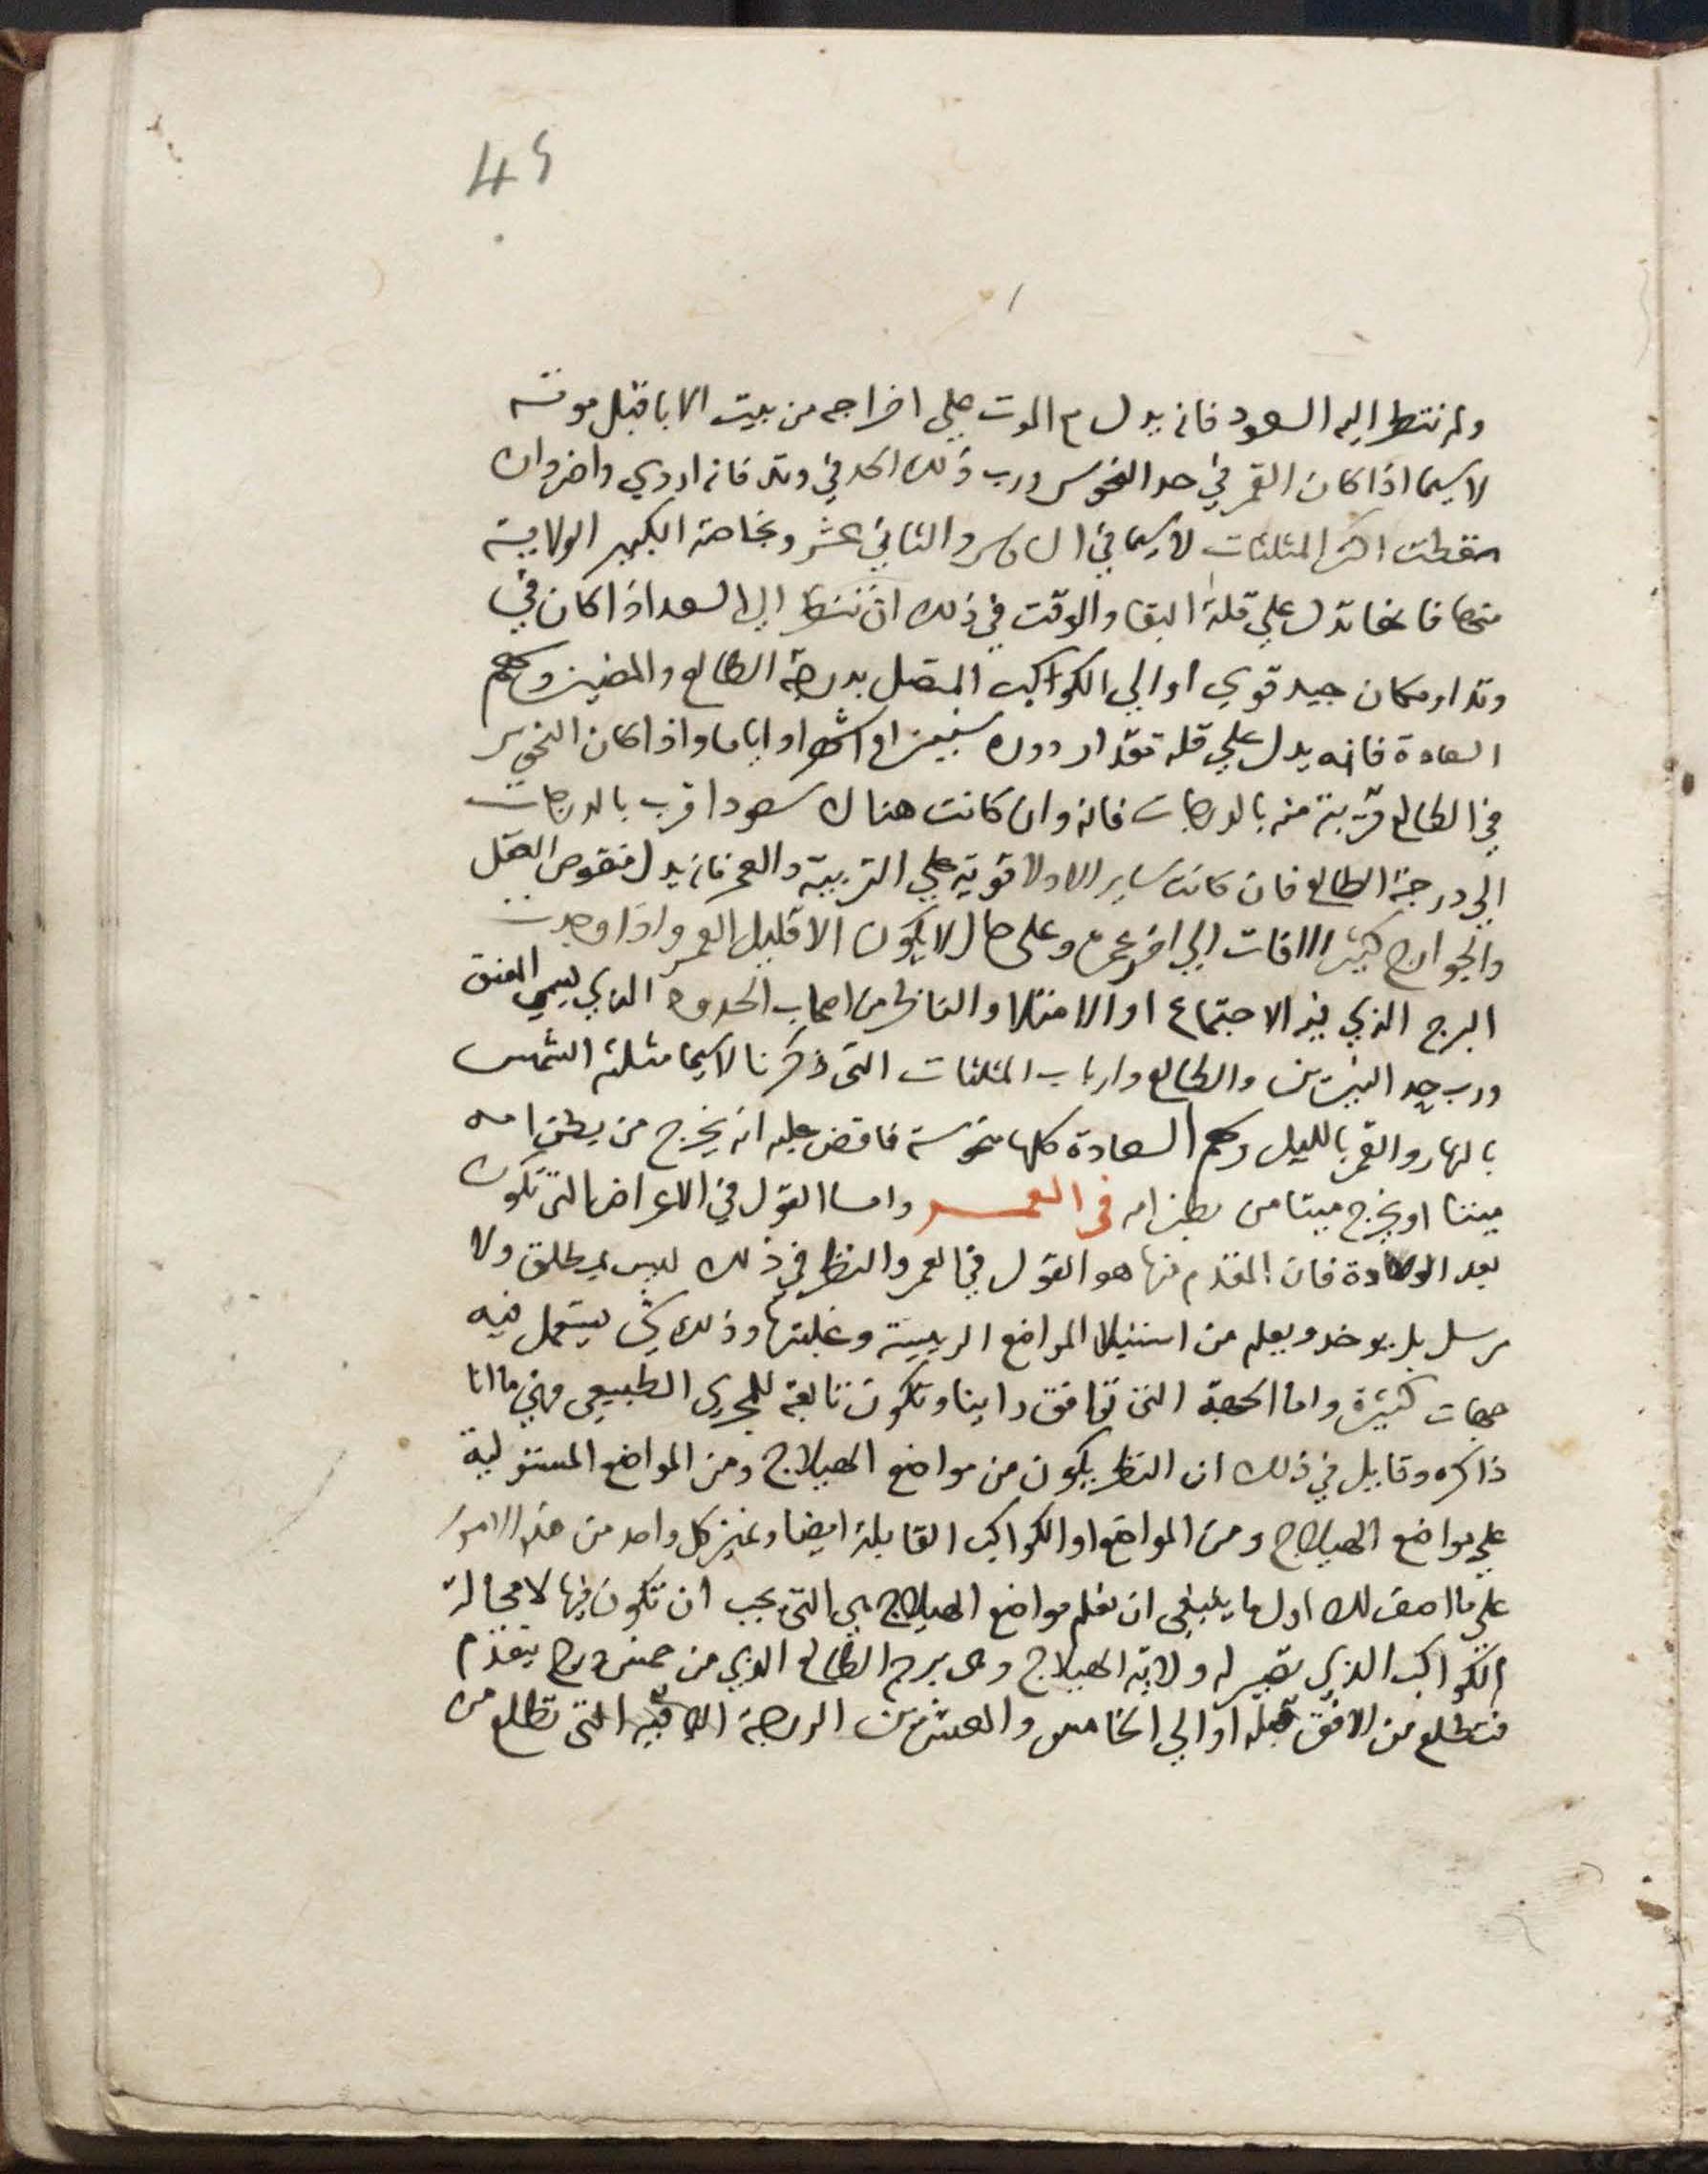 45
ولم تنظر اليه السعود فانه يدل مع الموت علي اخراجه من بيت الابا قبل موته
لا سيما اذا كان القمر في حد النحوس ورب ذلك الحد في وتد فانه اردي واضر وان
سقطت اكثر المثلثات لا سيما في السادس والثاني عشر وبخاصة الكبير الولاية
منها فانها تدل علي قلة البقا والوقت في ذلك ان تنظر الي السعد اذا كان في
وتد او مكان جيد قوي او الي الكواكب المتصل بدرجة الطالع والمضيين وسهم
السعادة فانه يدل علي قلة مقدار دوره سنين او اشهرا او اياما واذا كان النحوس
في الطالع قريبة منه بالدرجات فانه وان كانت هناك سعودا قرب بالدرجات
الي درجة الطالع فان كانت ساير الادلا قوية علي التربية والعمر فانه يدل منقوص العقل
والجوارح كثير الافات الي اخر عمره وعلي حال لا يكون الا قليل العمر واذا وجدت
البرج الذي فيه الاجتماع او الامتلا والناظر من اصحاب الحدود الذي يسمي العنق
ورب حد النيرين والطالع وارباب المثلثات التي ذكرنا لا سيما مثلثه الشمس
بالنهار والقمر بالليل وسهم السعادة كلها منحوسة فاقض عليه انه يخرج من بطن امه
ميتا او يخرج ميتا من بطن امه في العمر واما القول في الاعراض التي تكون
بعد الولادة فان المقدم منها هو القول في العمر والنظر في ذلك ليس بمطلق ولا
مرسل بل يوخذ ويعلم من استيلا المواضع الرييسة وغلبتها وذلك شي يستعمل فيه
جهات كثيرة واما الجهة التي توافق راينا وتكون تابعة للمجري الطبيعي فهي ما انا
ذاكره وقايل في ذلك ان النظر يكون من مواضع الهيلاج ومن المواضع المستولية
علي مواضع الهيلاج ومن المواضع او الكواكب القابلة ايضا وتميز كل واحد من هذه الامور
علي ما اصف لك اول ما ينبغي ان نعلم مواضع الهيلاج هي التي يجب ان تكون فيها لا محالة
الكواكب الذي تصير له ولاية الهيلاج وهي برج الطالع الذي من خمس درج يتقدم
فتطلع من الافق قبله او الي الخامس والعشرين الدرجة الباقية التي تطلع من